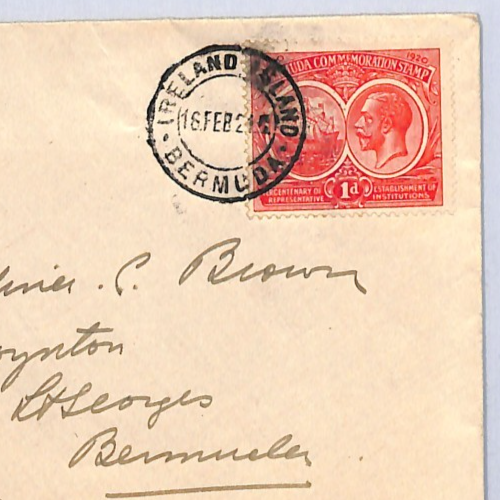 IRELAND ISLAND
16 FEB 2
BERMUDA
1920
UDA COMMEMORATION STAMP
TERCENTENARY OF REPRESENTATIVE
1d
ESTABLISHMENT OF INSTITUTIONS
C. Brown
oynton
St Georges
Bermuda